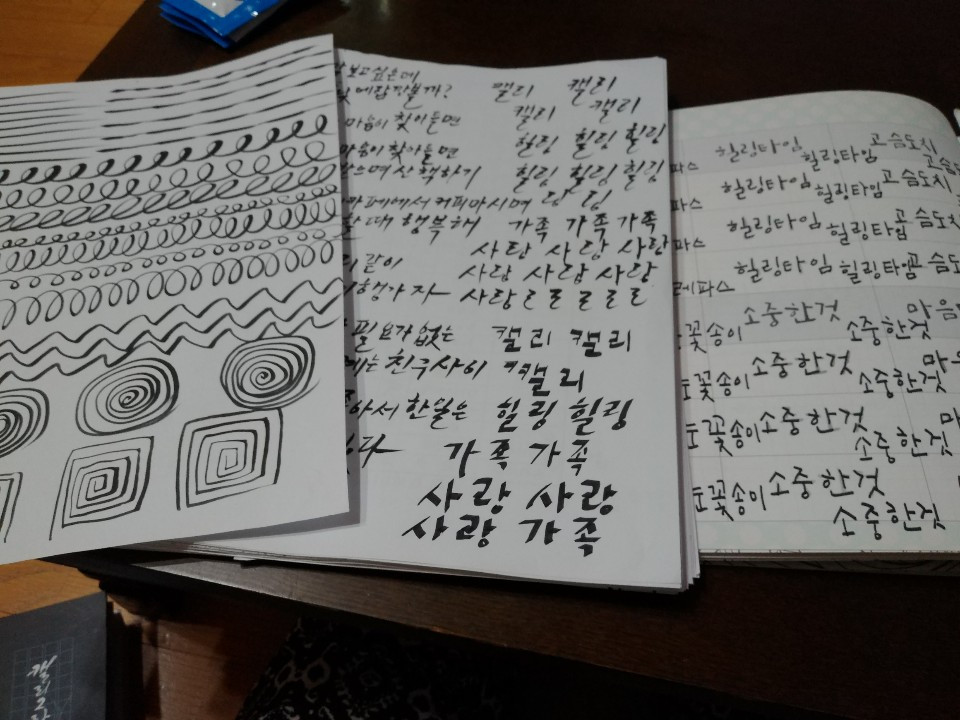 보고싶은데 캘리 캘리
에 담가볼까? 캘리 캘리
마음이 찾아들면 힐링 힐링 힐링
마음이 찾아들면 힐링 힐링 힐링
산책하기
카페에서 커피마시며 가족 가족 가족
때 행복해 사랑 사랑 사랑
같이 사람 사람 사랑
사랑 ㄹㄹㄹㄹㄹ
필요가 없는 캘리 캘리
친구사이 캘리
아서 한알은 힐링 힐링
가족 가족
사랑 사랑
사랑 가족
파스 힐링타임 힐링타임 고슴도치
파스 힐링타임 힐링타임 고슴도치
파스 힐링타임 힐링타임 고슴도
레파스 힐링타임 힐링타임 고슴도
꽃송이 소중한것 소중한것 마음
눈꽃송이 소중한것 소중한것 마음
눈꽃송이 소중한것 소중한것 마
눈꽃송이 소중한것 소중한것